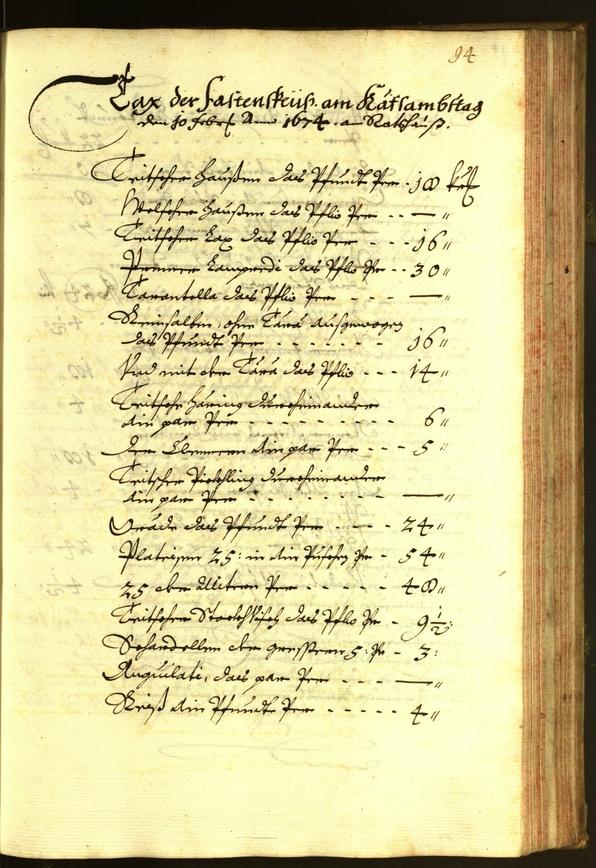 94
Tax der Fastenspeiß. am Rathsambstag
den 10 Febr: Anno 1674. am Rathauß.
Teitscher Haußen das Pfundt Per . 18 kr
Welscher Haußen das Pfdto Per - - — "
Teitscher Lax das Pfdto Per - - - 16 "
Lamperdi das Pfdto Per - - 30 "
Tarantella das Pfdto Per - - - — "
Reinsalben, ohne Tara außgewogen
das Pfundt Per - - - - - - - 16 "
Und mit der Tara das Pfdto - - - 14 "
Teitsche Häring durcheinander
ain par Per - - - - - - - - - 6 "
der Clenern ain par Per - - - 5 "
Teitscher Pickhling durcheinander
ain par Per - - - - - - - — "
das Pfundt Per - - - 24 "
Plateisen 25: in Per - 54 "
25 der Mitern Per - - - - - 48 "
Teitschen Stockhfisch das Pfdto Per - 9½:
der gressern 5: Per - 3:
das par Per - - - - — "
Reiß ain Pfundt Per - - - - - 4 "